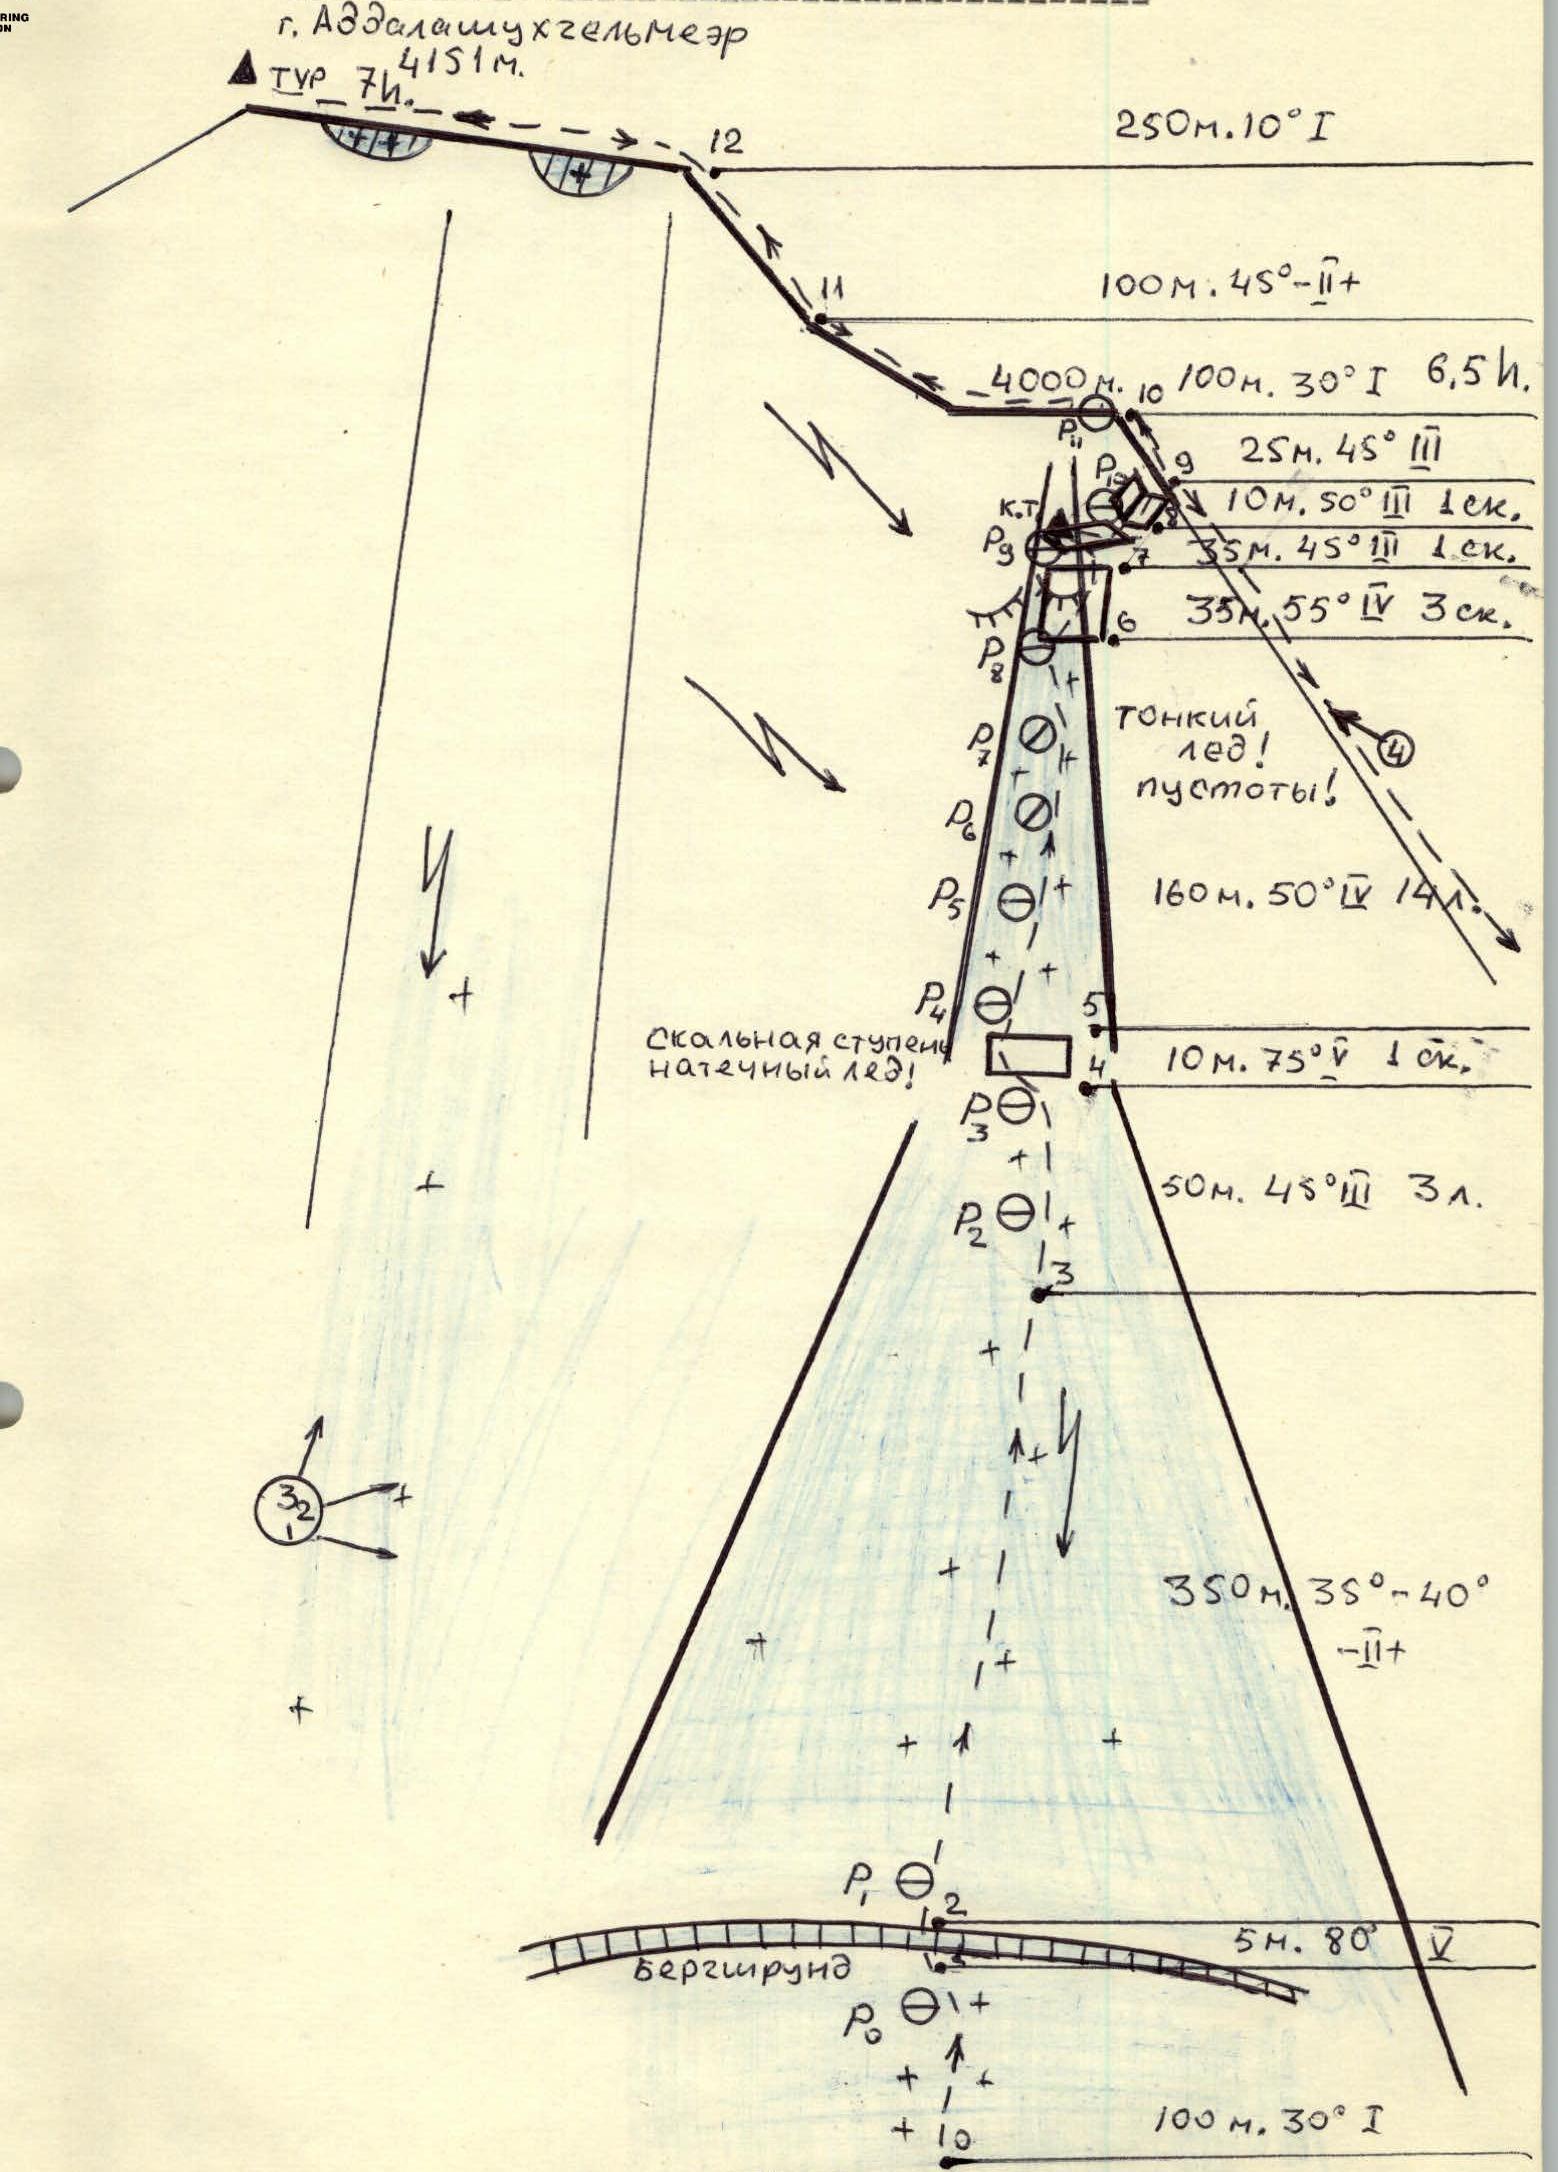 RING
ON
г. Аддалашухгельмеэр
4151 м.
ТУР 7h.
12
250м. 10° I
11
100м. 45° -II+
4000м.
10
100м. 30° I 6,5h.
P11
9
25м. 45° III
P10
8
10м. 50° III 1ск.
к.т.
P9
7
35м. 45° III 1ск.
6
35м. 55° IV 3ск.
P8
тонкий
лед!
пустоты!
4
P7
P6
P5
160м. 50° IV 14л.
P4
5
скальная ступень
натечный лед!
4
10м. 75° V 1ск.
P3
50м. 45° III 3л.
P2
3
3
2
1
350м. 35°-40°
-II+
P1
2
5м. 80° V
Бергшрунд
P0
100м. 30° I
0